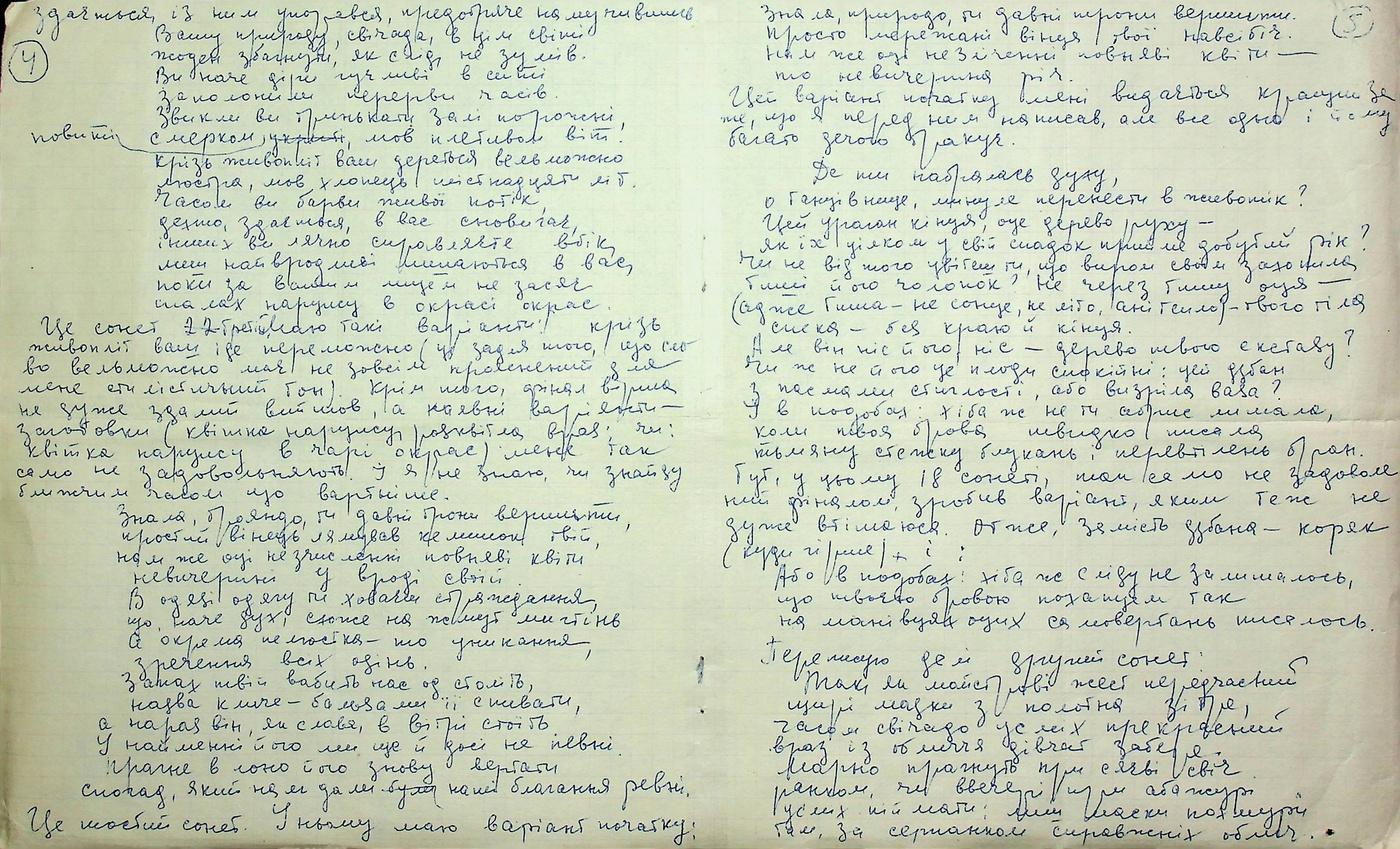 4
здається, із ним упорався, предобряче намучившись
Вашу природу, свічада, в цім світі
жоден збагнути, як слід, не зумів.
Ви наче діри сутливі в ситі
заполонили перерви часів.
Звикли ви тринькати залі порожні,
повиті смерком, мов плетивом віт.
Крізь живопліт ваш дереться вельможно
люстра, мов хлопець шістнадцяти літ.
Часом ви барви живої потік,
дехто, здається, в вас сновигає,
інших ви лячно справляєте вбік,
лиш найвродливі лишаються в вас,
поки за вашим лицем не засяє
спалах нарцису в окрасі окрас.
Це сонет третій. Маю такі варіанти: крізь
живопліт ваш іде переможно (це задля того, що сло-
во вельможно має не зовсім прояснений для
мене стилістичний тон). Крім того, фінал вірша
не дуже вдалий вийшов, а наявні варіянти —
заготовки (квітка нарцису розквітла враз; чи:
квітка нарцису в чарі окрас) мене так
само не задовольняють. І я не знаю, чи знайду
ближчим часом що вартніше.
Знала, трояндо, ти давні трони вершити,
простий вінець лямував келишок твій,
нам же оці незчисленні повняві квіти
невичерпні у вроді своїй.
В одязі одягу ти ховаєш страждання,
що, наче дух, схоже на жмут миготінь
а окрема пелюстка — то уникання,
зречення всіх одінь.
Запах твій вабить нас од століть,
назва кличе — бальзами її спивати,
а нараз він, як слава, в вітрі стоїть
У найменні його ми ще й досі не певні.
Прагне в лоно його знову вертати
спогад, який нам дали наші благання ревні.
Це шостий сонет. У ньому маю варіант початку:
5
Знала, природо, ти давні трони вершити.
Просто мережані вінця твої навсібіч.
Нам же оці незчіченні повняві квіти —
то невичерпна річ.
Цей варіант початку мені видається кращим за
те, що я перед ним написав, але все одно і йому
багато дечого бракує.
Де ти набралась духу,
о танцівнице, минуле перенести в живопік?
Цей ураган кінця, оце дерево руху —
як їх цілком у свій спадок прийме добутий рік?
Чи не від того цвітеш ти, що виром своїм захопила
тиші його чолопок? Не через тишу оця —
(адже тиша — не сонце, не літо, ані тепло) — твого тіла
спека — без краю й кінця.
Але він ніс його, ніс — дерево твого екстазу?
Чи ж не його це плоди спокійні: цей дзбан
з пасмами стиглості, або визріла ваза?
І в подобах: хіба ж не ти обрис лишала,
коли твоя брова швидко писала
тьмяну стежку блукань, перевтілень бран.
Тут, у цьому 18 сонеті, так само не задоволе-
ний фіналом, зробив варіянт, яким теж не
дуже втішаюся. Отже, замість дзбана — коряк
(куди гірше) + і :
Або в подобах: хіба ж сліду не залишалось,
що твоєю бровою похапцем так
на манівцях оцих самовертань писалось.
Переписую далі другий сонет:
Так, як майстрові жест передчасний
щирі мазки з полотна зітре,
часом свічадо усміх прекрасний
враз із обличчя дівчат забере.
Марно прагнуть при сяєві свіч
ранком, чи ввечері при абажурі
усміх піймати: лиш маски похмурі
там, за серпанком справжніх облич.